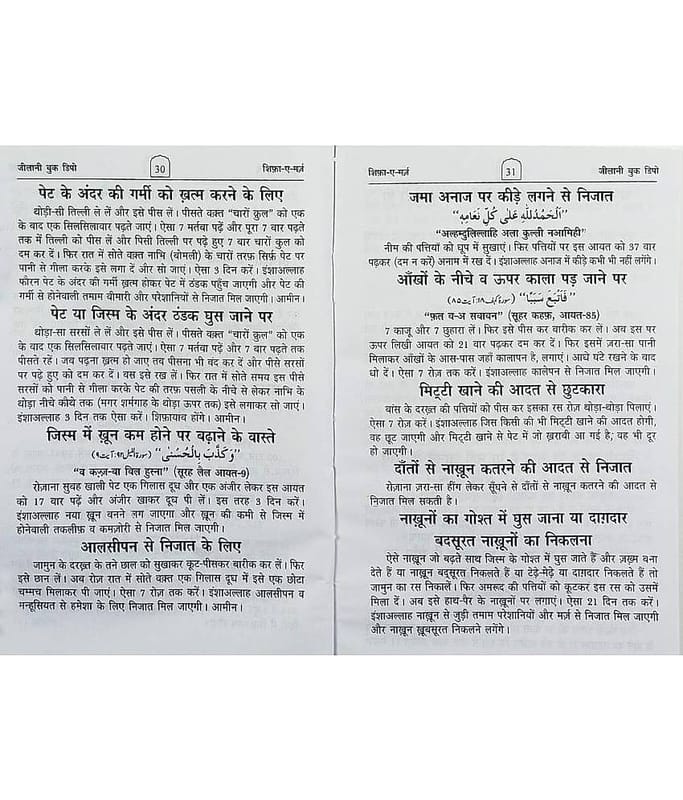 जीलानी बुक डिपो 30 शिफ़ा-ए-मर्ज़
पेट के अंदर की गर्मी को ख़त्म करने के लिए
थोड़ी-सी तिल्ली ले लें और इसे पीस लें। पीसते वक़्त “चारों क़ुल” को एक
के बाद एक सिलसिलावार पढ़ते जाएं। ऐसा 7 मर्तबा पढ़ें और पूरा 7 वार पढ़ते
तक में तिल्ली को पीस लें और पिसी तिल्ली पर पढ़े हुए 7 वार चारों क़ुल को
दम कर दें। फिर रात में सोते वक़्त नाभि (बोमली) के चारों तरफ़ सिर्फ़ पेट पर
पानी से गीला करके इसे लगा दें और सो जाएं। ऐसा 3 दिन करें। इंशाअल्लाह
फौरन पेट के अंदर की गर्मी ख़त्म होकर पेट में ठंडक पहुँच जाएगी और पेट की
गर्मी से होनेवाली तमाम बीमारी और परेशानियों से निजात मिल जाएगी। आमीन।
पेट या जिस्म के अंदर ठंडक घुस जाने पर
थोड़ा-सा सरसों ले लें और इसे पीस लें। पीसते वक़्त “चारों क़ुल” को एक
के बाद एक सिलसिलावार पढ़ते जाएं। ऐसा 7 मर्तबा पढ़ें और 7 वार पढ़ते तक
पीसते रहें। जब पढ़ना ख़त्म हो जाए तब पीसना भी बंद कर दें और पीसे सरसों
पर पढ़े हुए को दम कर दें। बस इसे रख लें। फिर रात में सोते समय इस पीसे
सरसों को पानी से गीला करके पेट की तरफ़ पसली के नीचे से लेकर नाभि के
थोड़ा नीचे तक (मगर शर्मगाह के थोड़ा ऊपर तक) इसे लगाकर सो जाएं।
इंशाअल्लाह 3 दिन तक ऐसा करें। शिफ़ायाब होंगे। आमीन।
जिस्म में ख़ून कम होने पर बढ़ाने के वास्ते
”وَكَذَّبَ بِالْحُسْنٰى“ (سورۃ لیل ۹۲: آیت ۹)
“व कज़्ज़-बा बिल हुस्ना” (सूरह लैल आयत-9)
रोज़ाना सुबह खाली पेट एक गिलास दूध और एक अंजीर लेकर इस आयत
को 17 वार पढ़ें और अंजीर खाकर दूध पी लें। इस तरह 3 दिन करें।
इंशाअल्लाह नया ख़ून बनने लग जाएगा और ख़ून की कमी से जिस्म में
होनेवाली तकलीफ़ व कमज़ोरी से निजात मिल जाएगी।
आलसीपन से निजात के लिए
जामुन के दरख़्त के तने छाल को सुखाकर कूट-पीसकर बारीक कर लें। फिर
इसे छान लें। अब रोज़ रात में सोते वक़्त एक गिलास दूध में इसे एक छोटा
चम्मच मिलाकर पी जाएं। ऐसा 7 रोज़ तक करें। इंशाअल्लाह आलसीपन व
मन्हूसियत से हमेशा के लिए निजात मिल जाएगी। आमीन।
शिफ़ा-ए-मर्ज़ 31 जीलानी बुक डिपो
जमा अनाज पर कीड़े लगने से निजात
”اَلْحَمْدُلِلّٰهِ عَلٰى كُلِّ نَعَامِهٖ“
“अल्हम्दुलिल्लाहि अला कुल्ली नआमिही”
नीम की पत्तियों को धूप में सुखाएं। फिर पत्तियों पर इस आयत को 37 वार
पढ़कर (दम न करें) अनाम में रख दें। इंशाअल्लाह अनाज में कीड़े कभी भी नहीं लगेंगे।
आँखों के नीचे व ऊपर काला पड़ जाने पर
”فَاَتْبَعَ سَبَبًا“ (سورۃ کہف ۱۸: آیت ۸۵)
“फ़त य-अ सबाबन” (सूहर कहफ़, आयत-85)
7 काजू और 7 छुहारा लें। फिर इसे पीस कर बारीक कर लें। अब इस पर
ऊपर लिखी आयत को 21 वार पढ़कर दम कर दें। फिर इसमें ज़रा-सा पानी
मिलाकर आँखों के आस-पास जहां कालापन है, लगाएं। आधे घंटे रखने के बाद
धो दें। ऐसा 7 रोज़ तक करें। इंशाअल्लाह कालेपन से निजात मिल जाएगी।
मिट्टी खाने की आदत से छुटकारा
बांस के दरख़्त की पत्तियों को पीस कर इसका रस रोज़ थोड़ा-थोड़ा पिलाएं।
ऐसा 7 रोज़ करें। इंशाअल्लाह जिस किसी की भी मिट्टी खाने की आदत होगी,
वह छूट जाएगी और मिट्टी खाने से पेट में जो ख़राबी आ गई है; वह भी दूर
हो जाएगी।
दाँतों से नाख़ून कतरने की आदत से निजात
रोज़ाना ज़रा-सा हींग लेकर सूँघने से दाँतों से नाख़ून कतरने की आदत से
निजात मिल सकती है।
नाख़ूनों का गोश्त में घुस जाना या दाग़दार
बदसूरत नाख़ूनों का निकलना
ऐसे नाख़ून जो बढ़ते साथ जिस्म के गोश्त में घुस जाते हैं और ज़ख़्म बना
देते हैं या नाख़ून बदसूरत निकलते हैं या टेढ़े-मेढ़े या दाग़दार निकलते हैं तो
जामुन का रस निकालें। फिर अमरूद की पत्तियों को कूटकर इस रस को उसमें
मिला दें। अब इसे हाथ-पैर के नाख़ूनों पर लगाएं। ऐसा 21 दिन तक करें।
इंशाअल्लाह नाख़ून से जुड़ी तमाम परेशानियों और मर्ज़ से निजात मिल जाएगी
और नाख़ून ख़ूबसूरत निकलने लगेंगे।